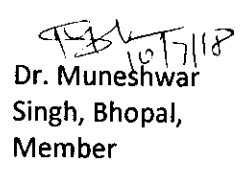 10/7/18
Dr. Muneshwar
Singh, Bhopal,
Member